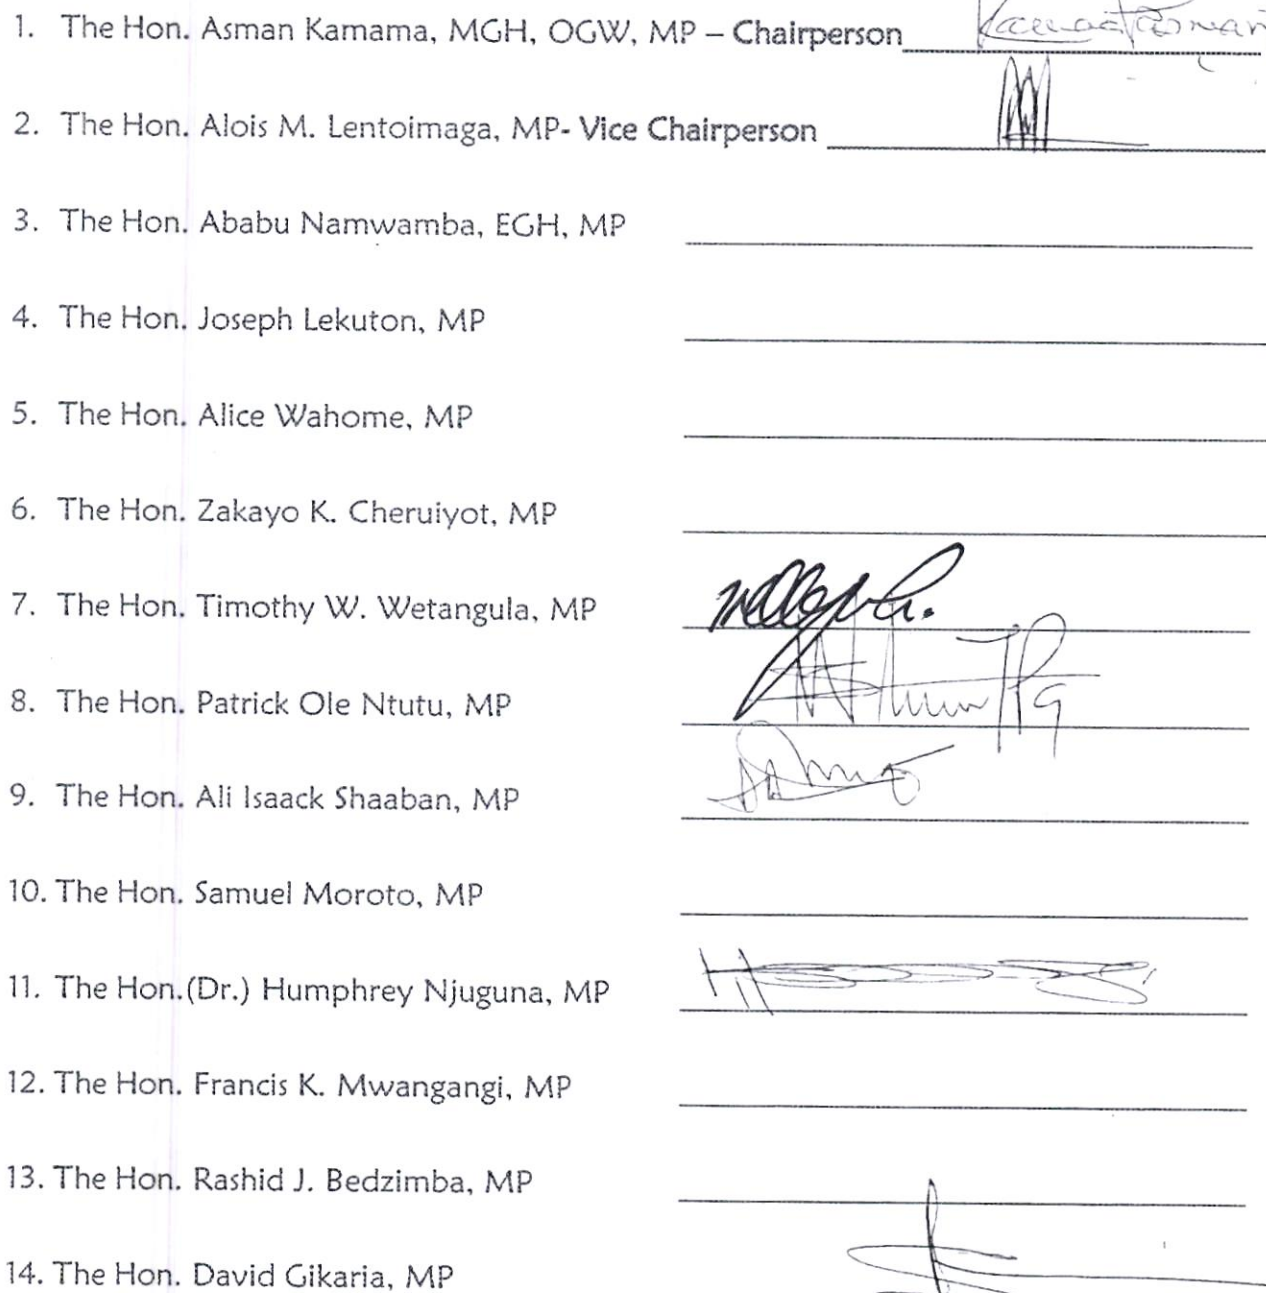 1. The Hon. Asman Kamama, MGH, OGW, MP – Chairperson
2. The Hon. Alois M. Lentoimaga, MP- Vice Chairperson
3. The Hon. Ababu Namwamba, EGH, MP
4. The Hon. Joseph Lekuton, MP
5. The Hon. Alice Wahome, MP
6. The Hon. Zakayo K. Cheruiyot, MP
7. The Hon. Timothy W. Wetangula, MP
8. The Hon. Patrick Ole Ntutu, MP
9. The Hon. Ali Isaack Shaaban, MP
10. The Hon. Samuel Moroto, MP
11. The Hon.(Dr.) Humphrey Njuguna, MP
12. The Hon. Francis K. Mwangangi, MP
13. The Hon. Rashid J. Bedzimba, MP
14. The Hon. David Gikaria, MP